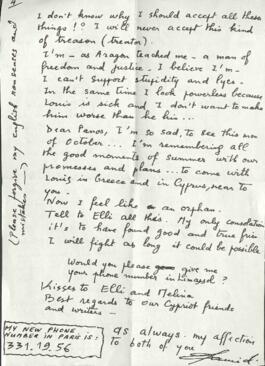 4
I don't know why I should accept all these
things!? I will never accept this kind
of treason (Treator).
I'm - as Aragon teached me - a man of
freedom and justice. I believe I'm -
I can't support stupidity and lyes.
In the same time I look powerless because
Louis is sick and I don't want to make
him worse than he his...
Dear Panos, I'm so sad, to see this man
of October... I'm remembering all
the good moments of summer with our
promesses and plans... to come with
Louis in Greece and in Cyprus, near to
you -
Now I feel like an orphan.
Tell to Elli all this. My only consolation
it's to have found good and true frien
I will fight as long it could be possible
Would you please give me
your phone number in Limassol?
Kisses to Elli and Melina
Best regards to our Cypriot friends
and writers -
as always - my affection
to both of you
Hamid.
MY NEW PHONE
NUMBER IN PARIS IS:
331.19.56
(Please forgive my english nonsenses and
mistakes...)